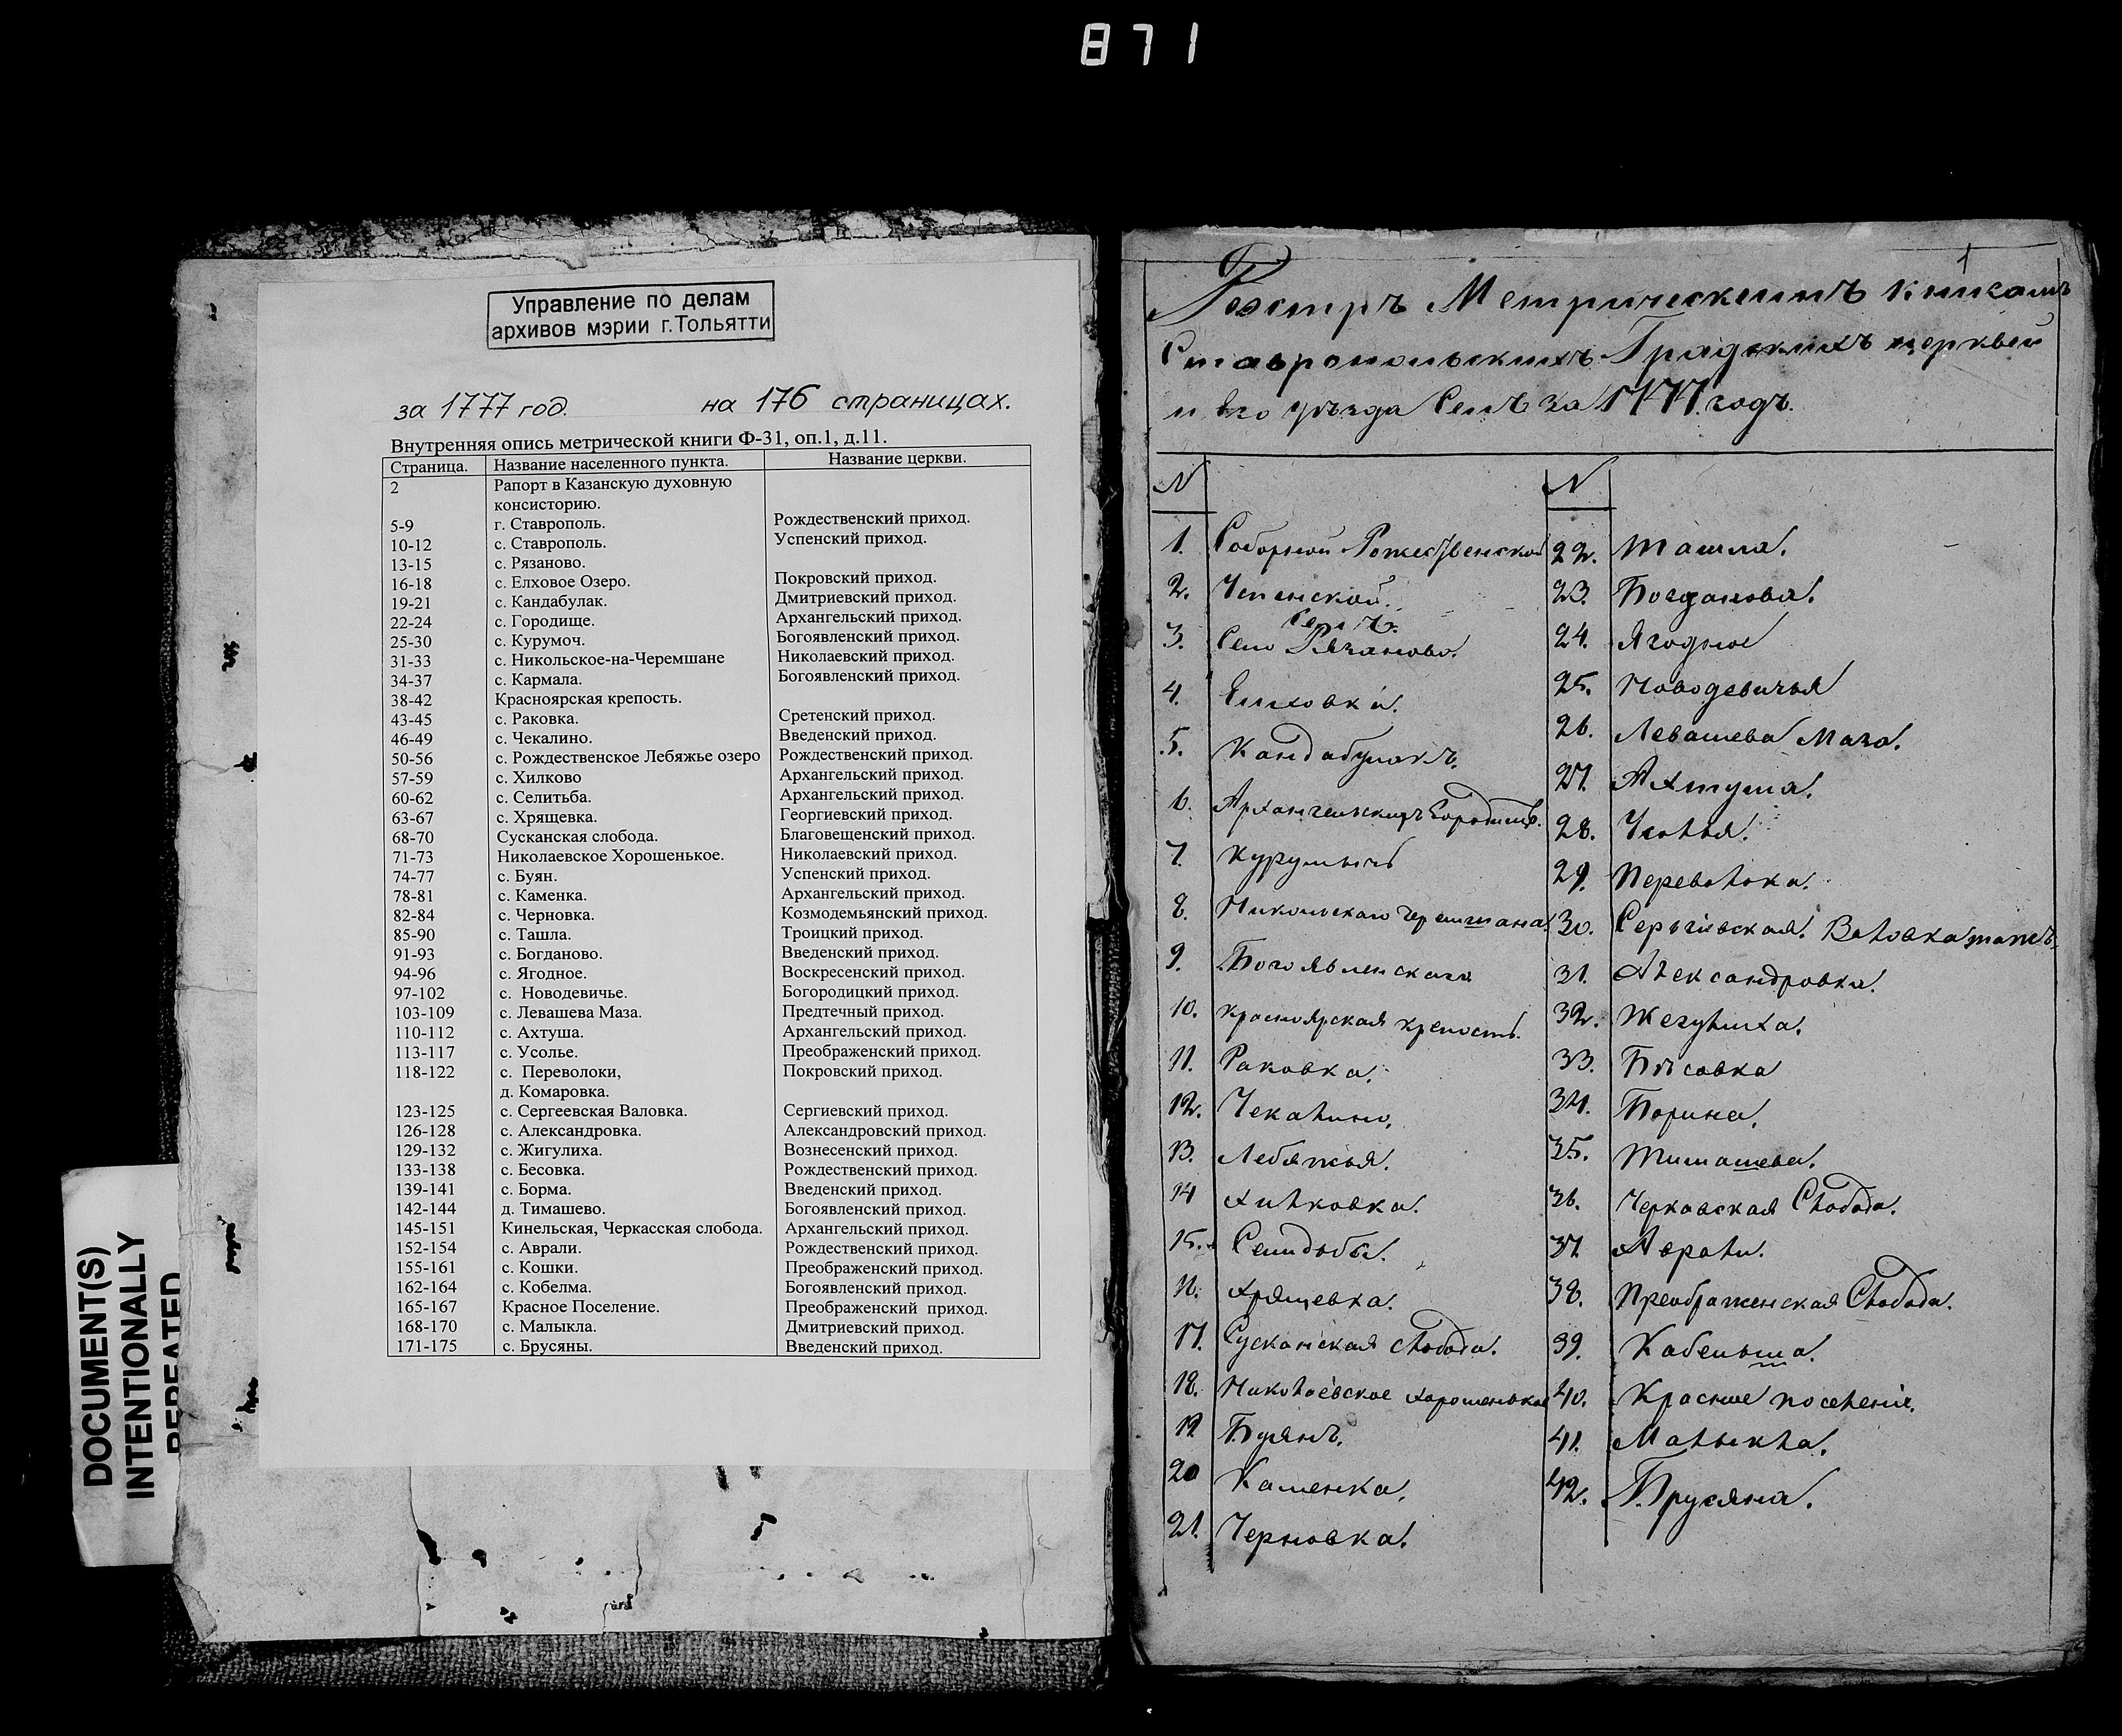 871
Управление по делам
архивов мэрии г.Тольятти
за 1777 год. на 176 страницах.
Внутренняя опись метрической книги Ф-31, оп.1, д.11.
Страница. Название населенного пункта. Название церкви.
2 Рапорт в Казанскую духовную
консисторию.
5-9 г. Ставрополь. Рождественский приход.
10-12 с. Ставрополь. Успенский приход.
13-15 с. Рязаново.
16-18 с. Елховое Озеро. Покровский приход.
19-21 с. Кандабулак. Дмитриевский приход.
22-24 с. Городище. Архангельский приход.
25-30 с. Курумоч. Богоявленский приход.
31-33 с. Никольское-на-Черемшане Николаевский приход.
34-37 с. Кармала. Богоявленский приход.
38-42 Красноярская крепость.
43-45 с. Раковка. Сретенский приход.
46-49 с. Чекалино. Введенский приход.
50-56 с. Рождественское Лебяжье озеро Рождественский приход.
57-59 с. Хилково Архангельский приход.
60-62 с. Селитьба. Архангельский приход.
63-67 с. Хрящевка. Георгиевский приход.
68-70 Сусканская слобода. Благовещенский приход.
71-73 Николаевское Хорошенькое. Николаевский приход.
74-77 с. Буян. Успенский приход.
78-81 с. Каменка. Архангельский приход.
82-84 с. Черновка. Козмодемьянский приход.
85-90 с. Ташла. Троицкий приход.
91-93 с. Богданово. Введенский приход.
94-96 с. Ягодное. Воскресенский приход.
97-102 с. Новодевичье. Богородицкий приход.
103-109 с. Левашева Маза. Предтечный приход.
110-112 с. Ахтуша. Архангельский приход.
113-117 с. Усолье. Преображенский приход.
118-122 с. Переволоки, Покровский приход.
д. Комаровка.
123-125 с. Сергеевская Валовка. Сергиевский приход.
126-128 с. Александровка. Александровский приход.
129-132 с. Жигулиха. Вознесенский приход.
133-138 с. Бесовка. Рождественский приход.
139-141 с. Борма. Введенский приход.
142-144 д. Тимашево. Богоявленский приход.
145-151 Кинельская, Черкасская слобода. Архангельский приход.
152-154 с. Аврали. Рождественский приход.
155-161 с. Кошки. Преображенский приход.
162-164 с. Кобелма. Богоявленский приход.
165-167 Красное Поселение. Преображенский приход.
168-170 с. Малыкла. Дмитриевский приход.
171-175 с. Брусяны. Введенский приход.
DOCUMENT(S)
INTENTIONALLY
REPEATED
1
Реэстръ Метрическимъ книгамъ
Ставропольскихъ Градскихъ церквей
и его уѣзда Селъ за 1777 годъ.
N
1. Соборной Рожественской
2. Успенской.
Селъ.
3. Село Рязаново.
4. Елховки.
5. Кандабулакъ.
6. Архангельскаго Городище.
7. Курумычь
8. Никольскаго Черемшана.
9. Богоявленскага
10. Красноярская крепость.
11. Раковка.
12. Чекалино.
13. Лебяжья.
14 Хилковка.
15. Семидьбы.
16. Хрящевка.
17. Сусканская слобода.
18. Николаевское хорошенькое
19 Буянъ.
20 Каменка.
21. Черновка.
N
22. Ташла.
23. Богданова.
24. Ягодное
25. Новодевичья
26. Левашева Маза.
27. Ахтуша.
28. Усолья.
29. Переволока.
30. Серьгіевская Валовка тожъ.
31. Александровка.
32. Жегулиха.
33. Бѣсовка
34. Борина.
35. Тимашева.
36. Черкавская Слобода.
37 Аврали.
38. Преображенская Слобода.
39. Кабельма.
40. Красное поселеніе.
41. Малыкла.
42. Брусяна.